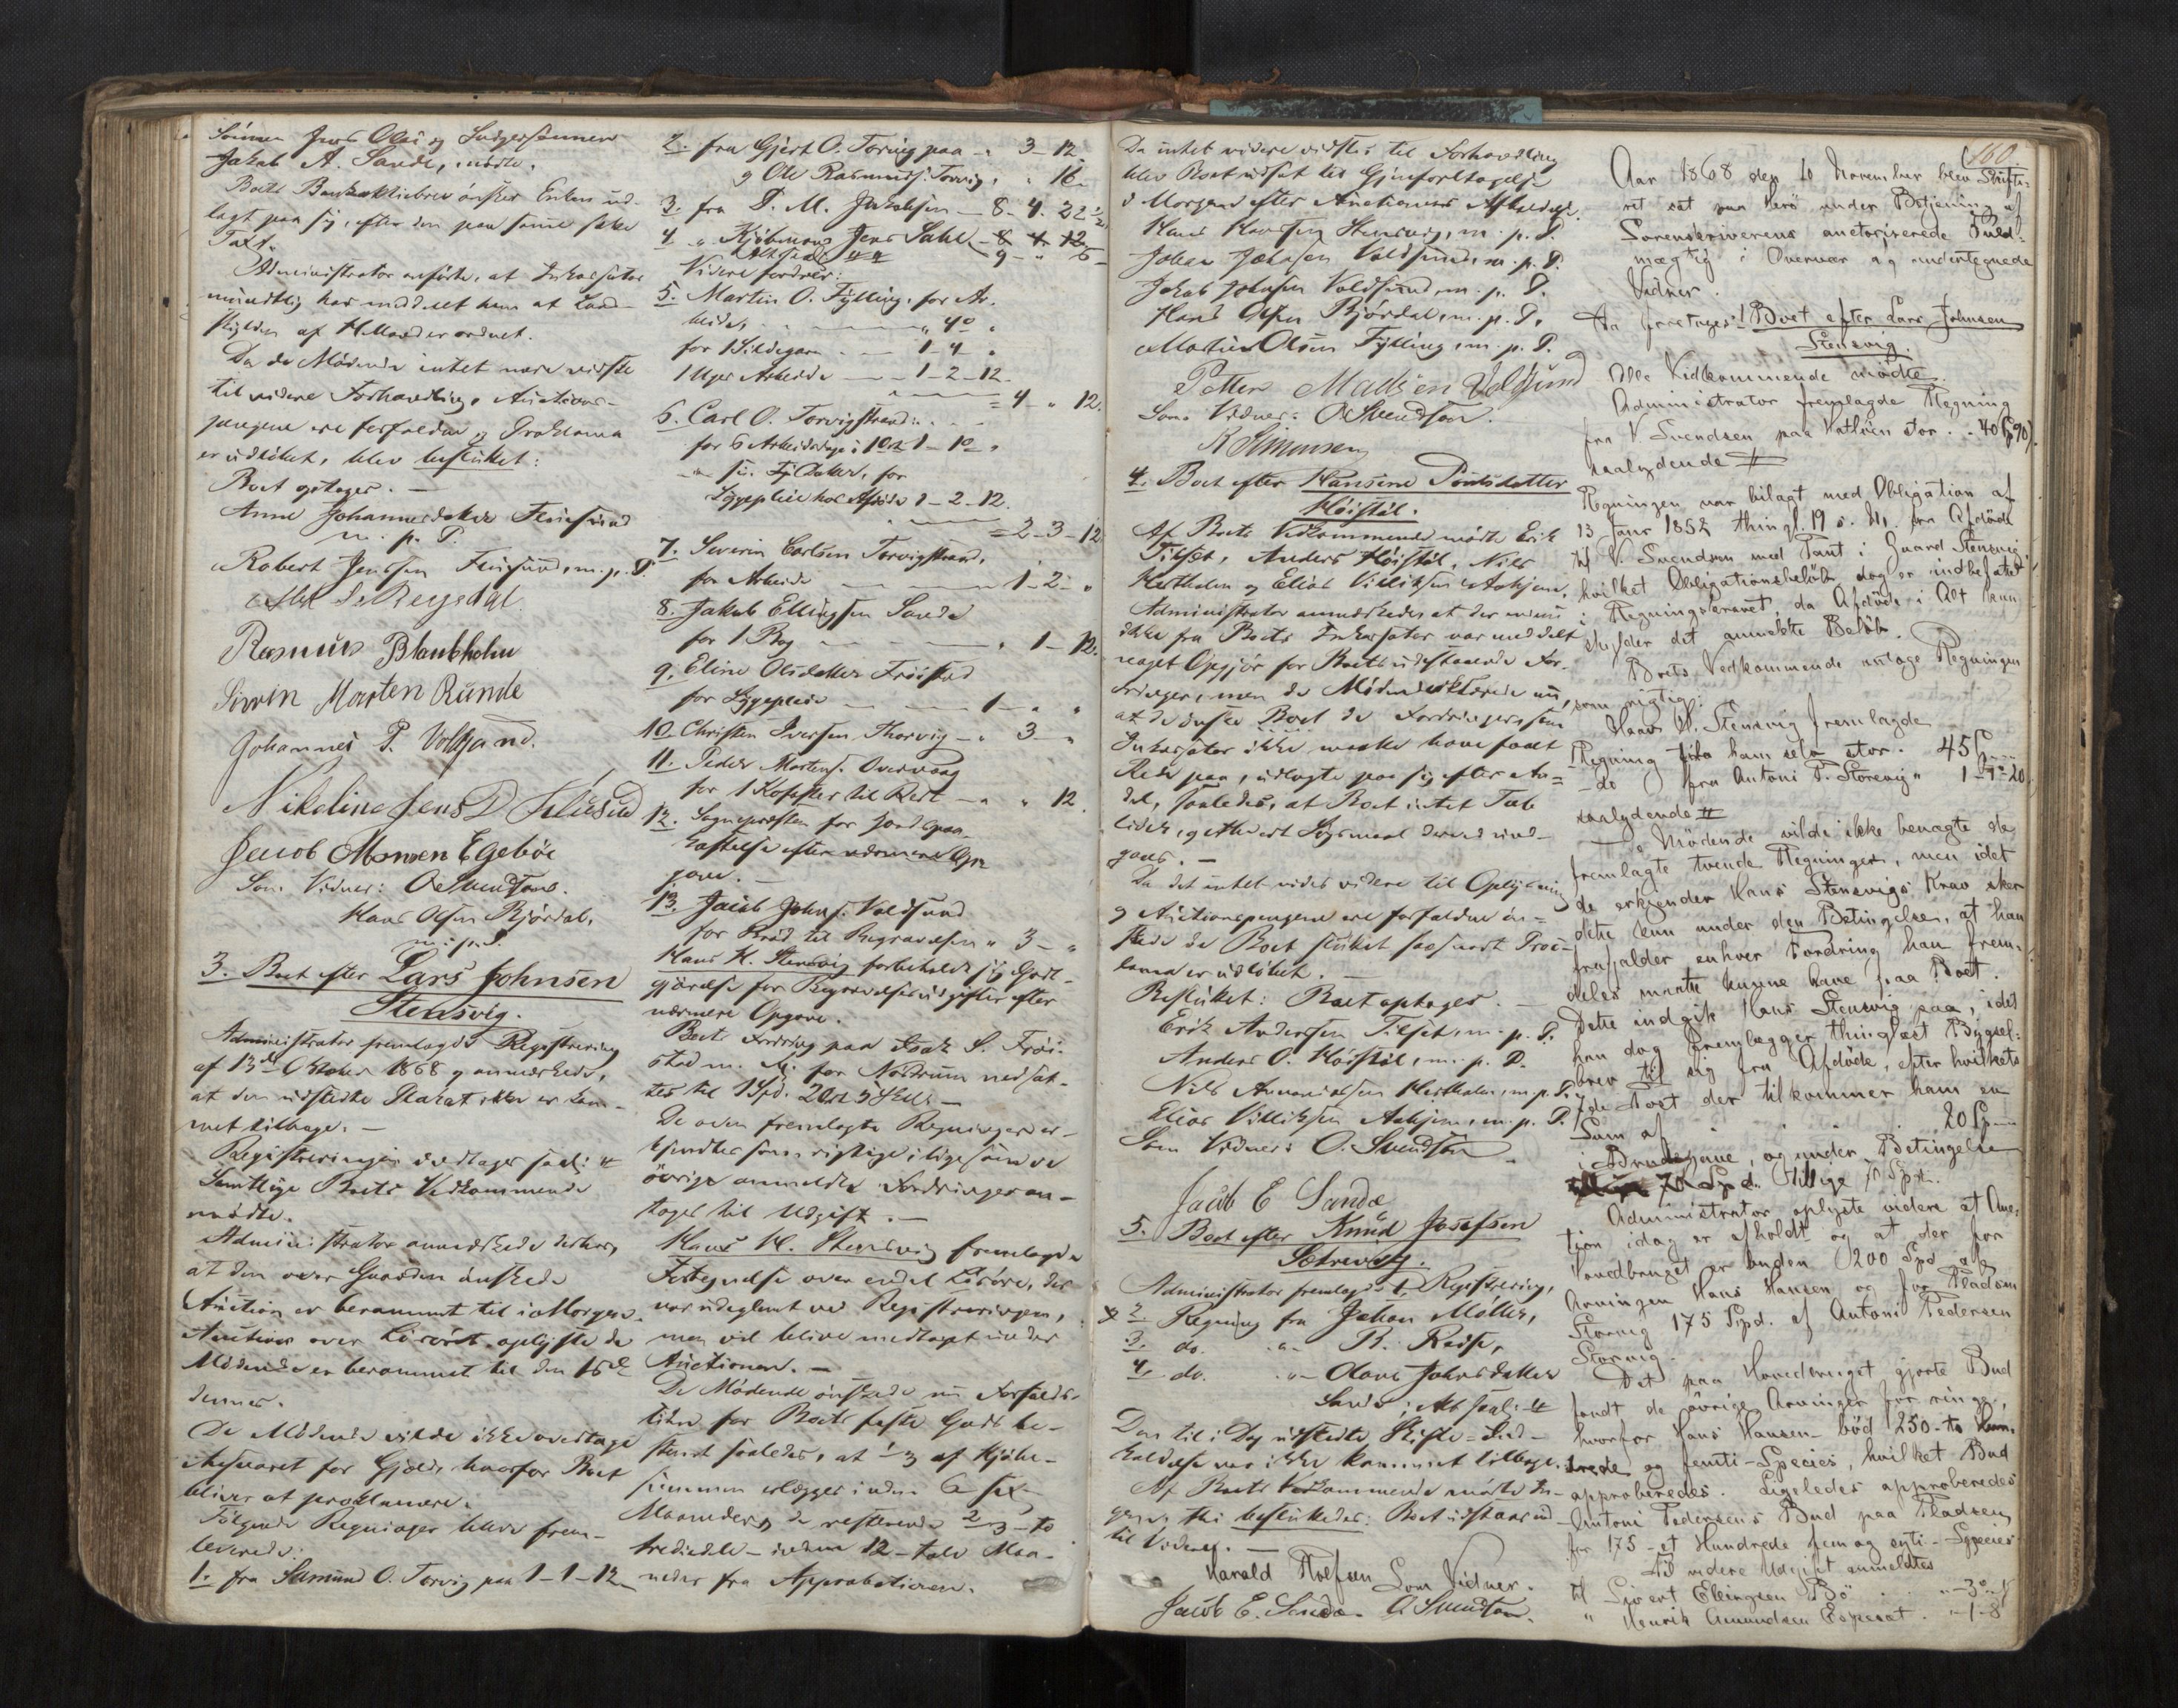 Sönnen Jens Olsen og Svigersönnen
Jakob A. Sande, mødte.
Boets Bankaktiebrev ønsker Enken ud-
lagt paa sig, efter den paa samme satte
Taxt.
Administrator anførte, at Inkassator
mundtlig har meddelt ham at Land-
skylden af er ordnet.
Da de Mödende intet mere vidste
til videre Forhandling, Auctions-
pengene ere forfaldne og Proklama
er udløbet, blev besluttet:
Boet optages. —
Anne Johannesdatter Flusund
m. p. P.
Robert Jenssen Flusund, m. p. P.
Rasmus Blankholm
Sivrin Marten Runde
Johannes P. Voldsund.
Nikoline Jens D
Jacob Monsen Egeböe
Som Vidner: O Svendsen.
Hans Olsen Bjørdal,
m. p. P.
3. Boet efter Lars Johnsen
Stensvig.
Administrator fremlagde Registrering
af 13de Oktober 1868 og anmærkede,
at den udstedte Plakat ikke er kom-
met tilbage. —
Registreringen indtages saal: #
Samtlige Boets Vedkommende
mødte.
Administrator anmærkede derhos,
at den over Gaarden ønskede
Auction er berammet til i Morgen.
Auction over Løsøret oplyste de
Mödende er berammet til den 15de
dennes.
De Mödende vilde ikke overtage
Ansvaret for Gjæld, hvorfor Boet
bliver at proklamere.
Følgende Regninger bleve frem-
leverede:
1. fra Samund O. Torvig paa 1-1-12
2. fra Gjert O. Torvig paa - " 3-12
og Ole Rasmuss. Torvig, " " 16.
3. fra P. M. Jacobsen — 8. 4. 22 1/2
4 " Kjöbmand Jens Dahl - 8 4 12
9 - " 5 -
Videre fordrer:
5. Martin O. Fylling, for Ar-
beide, " 4 "
for 1 Sildegarn — 1-4 "
1 Uges Arbeide — 1-2-12
= 4 - " 12.
6. Carl O. Torvigstrand:
for 6 Arbeidsdage i 1 1-1 "
for
Liggepleie hos Afdøde 1-2-12.
= 2-3-12
7. Severin Carlsen Torvigstrand,
for Arbeide — 1-2- "
8. Jakob Ellingsen Sande
for 1 Bog — " 1-12.
9. Eline Olsdatter Fröistad
for Liggepleie — 1 - " "
10 Christen Iversen Thorvig - " 3 - "
11. Peder Martens. Overvaag
for 1 til Rest — " " 12
12. Sognepræsten for Jordspaa-
kastelse efter nærmere Op-
gave. —
13. Jacob Johns. Voldsund
for Brød til Begravelsen " 3 - "
Hans H. Stensvig forbeholdt sig Godt-
gjørelse for Begravelsesudgifter efter
nærmere Opgave.
Boets Fordring paa Isak S. Fröi-
stad m. fl. for Nodrum nedsat-
tes til 1 Spd. 2 Ort 5 Skill —
De oven fremlagte Regninger er-
kjendtes som rigtige, ligesom de
øvrige anmeldte Fordringer an-
tages til Udgift. —
Hans H. Stensvig fremlagde
Fortegnelse over endel Løsøre, der
var udeglemt ved Registreringen,
men vil blive medtaget under
Auctionen. —
De Mödende ønskede nu Forfalds-
tiden for Boets faste Gods be-
stemt saaledes, at 1/3 af Kjöbe-
summen erlægges inden 6 sex
Maaneder, de resterende 2/3 - to
trediedele - inden 12 - tolv Maa-
neder fra Approbationen.
Da intet videre vidstes til Forhandling
blev Boet udsat til Gjenforetagelse
i Morgen efter Auctionens Afholdelse.
Hans Hansen Stensvig, m. p. P.
Johan Johnsen Voldsund, m. p. P.
Jakob Johnsen Voldsund, m. p. P.
Hans Olsen Bjørdal, m. p. P.
Martin Olsen Fylling, m. p. P.
Petter Madsen Voldsund
Som Vidner: O Svendsen.
R Simonsen
4. Boet efter Hansine Poulsdatter
Höistöl.
Af Boets Vedkommende mødte Erik
Tilset, Anders Höistöl, Nils
Hestholm og Elias Villiksen Askjem,
Administrator anmærkede, at der endnu
ikke fra Boets Inkassator var meddelt
noget Opgjör for Boets udestaaende For-
dringer, men de Mödende erklærede nu,
at de ønske Boet de Fordringer, som
Inkassator ikke maatte have faaet
Rede paa, udlagte paa sig efter An-
del, saaledes, at Boet intet Tab
lider, og ethvert Sögsmaal derved und-
gaaes. —
Da der intet vides videre til Oplysning
og Auctionspengene ere forfaldne øn-
skede de Boet sluttet saasnart Proc-
lama er udløbet. —
Besluttet: Boet optages. —
Erik Anderssen Tilset, m. p. P.
Anders O. Höistöl, m. p. P.
Nils Hestholm, m. p. P.
Elias Villiksen Askjem, m. p. P.
Som Vidner: O. Svendsen
Jacob E Sande
5. Boet efter Knud Josefsen
Sætrevig.
Administrator fremlagde 1, Registrering,
2 Regning fra Johan Möller,
3. do. " R. Reise,
4. do. " Olave Johnsdatter
Sande; Alt saal: #
Den til i Dag udstedte Skifte-Ind-
kaldelse var ikke kommet tilbage.
Af Boets Vedkommende mødte In-
gen, thi besluttedes: Boet udstaar ind-
til Videre. —
Harald Rolfsen Som Vidner.
Jacob E. Sande O Svendsen.
160.
Aar 1868 den 10 November blev Skifte-
ret sat paa Herö under Betjening af
Sorenskriverens auctoriserede Fuld-
mægtig i Overvær og undertegnede
Vidner.
Da foretages: 1. Boet efter Lars Johnsen
Stensvig.
Alle Vedkommende mødte.
Administrator fremlagde Regning
fra V. Svendsen paa stor. . 40
saalydende #
Regningen var bilagt med Obligation af
13 Janr 1852 thingl. 19 s. M. fra Afdöde
til V. Svendsen med Pant i Gaard Stensvig,
hvilket Obligationsbelöb dog er indbefattet
i Regningskravet, da Afdöde i Alt kun
skylder det anmeldte Belöb.
Boets Vedkommende antage Regningen
som rigtig.
Hans H. Stensvig fremlagde
Regning fra ham selv stor. 45
do fra Antoni P. Storevig " 1-1-20
saalydende #
De Mödende vilde ikke benægte de
fremlagte tvende Regninger, men idet
de erkjender Hans Stensvigs Krav sker
dette kun under den Betingelse, at han
frafalder enhver Fordring han frem-
deles maatte kunne have paa Boet.
Dette indgik Hans Stensvig paa, idet
han dog fremlægger thinglæst Bygsel-
brev til sig fra Afdöde, efter hvilkets
7de Post der tilkommer ham en
Sum af 20
i Brudegave, og under Betingelse
Administrator oplyste videre at Auc-
tjon idag er afholdt og at der for
Hovedbruget er buden 200 Spd af
Arvingen Hans Hansen og for Pladsen
Storvig 175 Spd. af Antoni Pedersen
Storvig.
Det paa Hovedbruget gjorte Bud
fandt de övrige Arvinger for ringe,
hvorfor Hans Hansen böd 250 - to Hun-
drede og femti - Species, hvilket Bud
approberedes. Ligeledes approberedes
Antoni Pedersens Bud paa Pladsen
for 175 - et Hundrede fem og sytti - Species
Til videre Udgift anmeldtes
til Sivert Ellingsen Bö " - 3
" Henrik Amundsen Espeset . " - 1 - 8